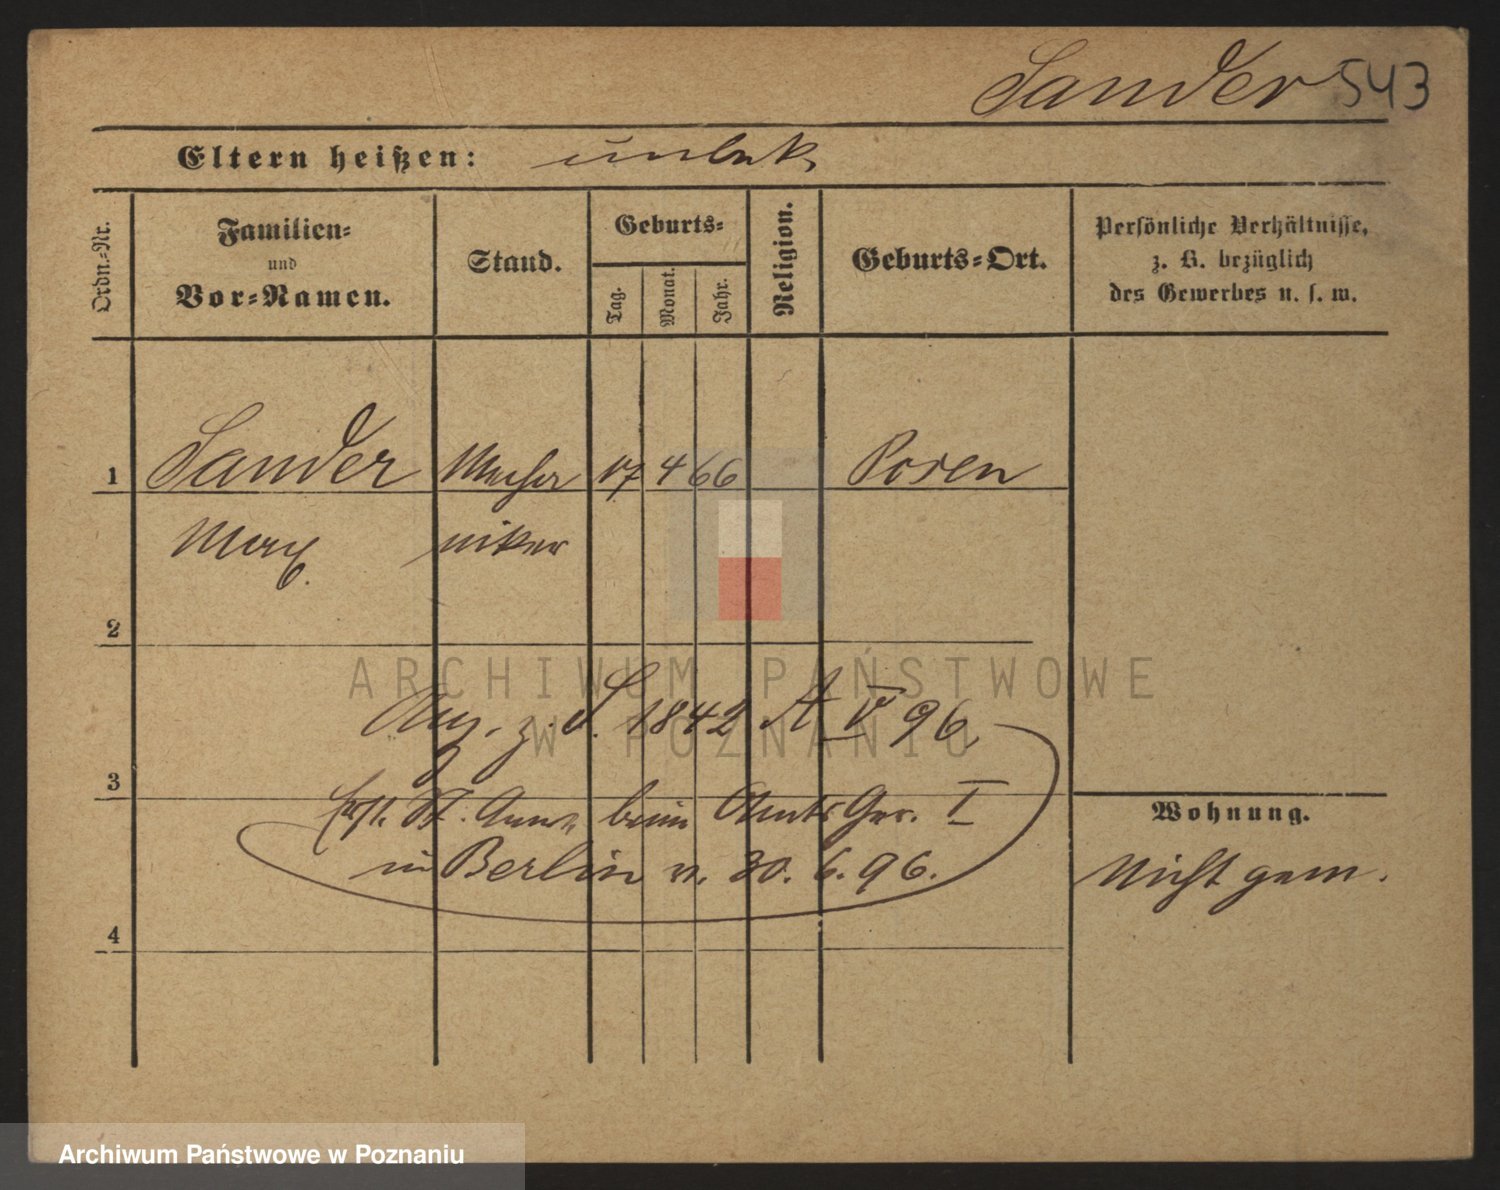 Sander 543
Eltern heißen: unbek.
Ordn.-Nr.
Familien-
und
Vor-Namen.
Stand.
Geburts-
Tag.
Monat.
Jahr.
Religion.
Geburts-Ort.
Persönliche Verhältnisse,
z. B. bezüglich
des Gewerbes u. s. w.
1 Sander Mecha 17 4 66 Posen
Max. niker
2
ARCHIWUM PAŃSTWOWE
W POZNANIU
Ang. z. S. 1842 A V 96
3
St. Anw. beim Amts Ger. I
in Berlin v. 30. 6. 96.
4
Wohnung.
Nicht gem.
Archiwum Państwowe w Poznaniu